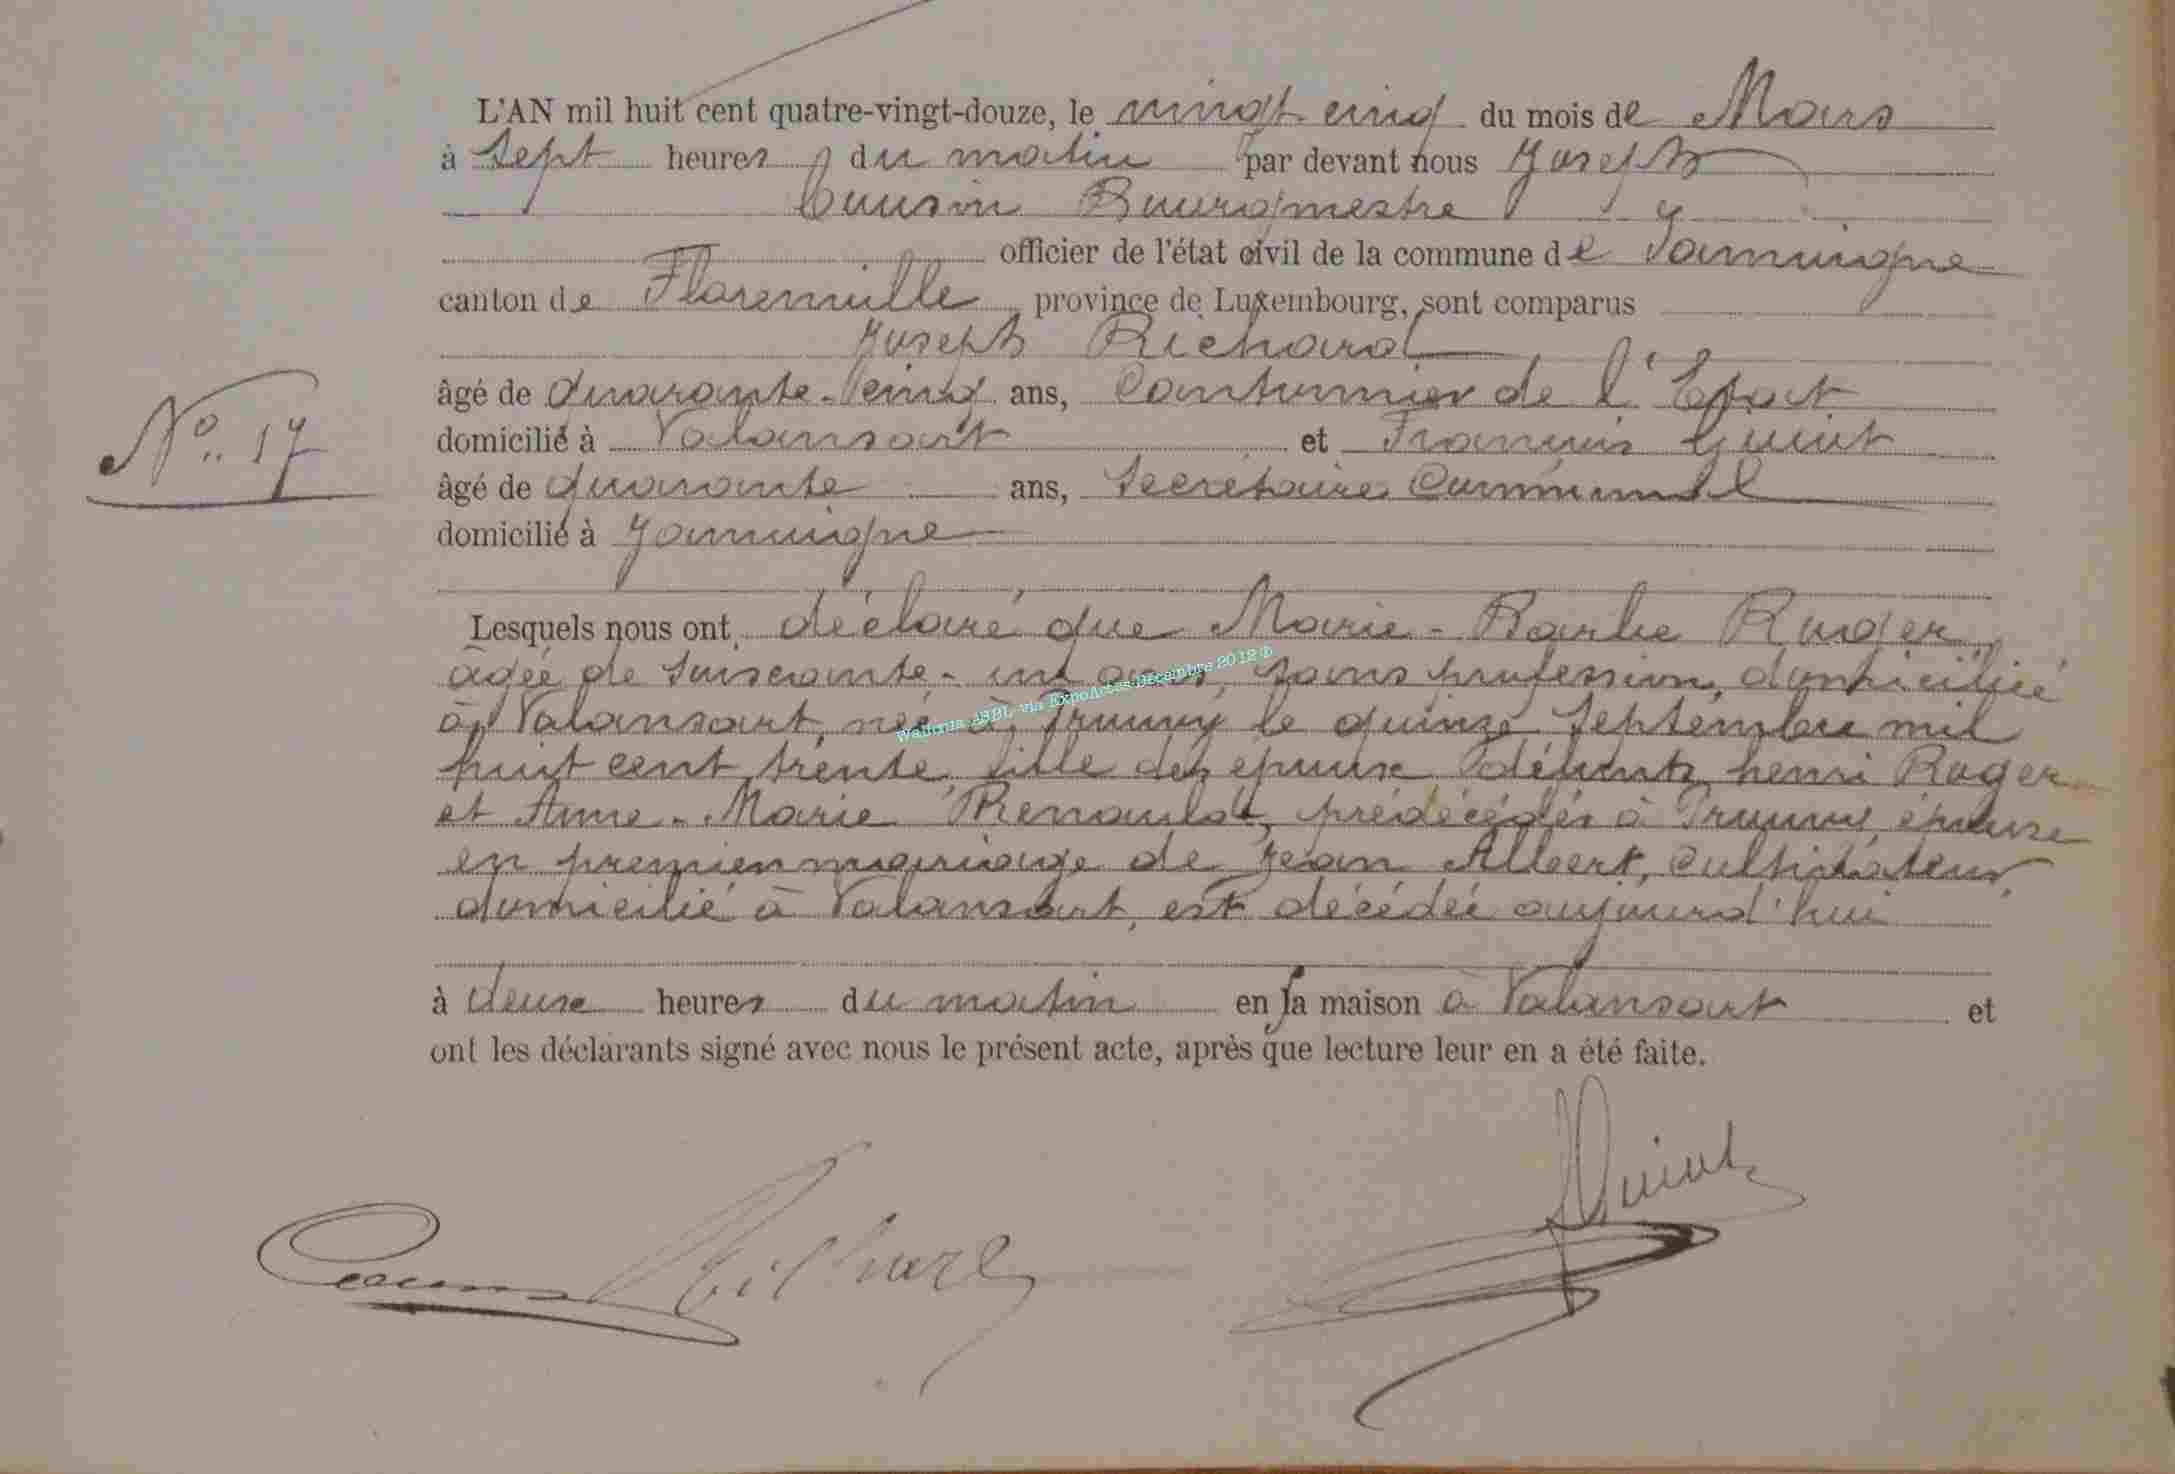 L'AN mil huit cent quatre-vingt-douze, le vingt-cinq du mois de Mars
à sept heures du matin par devant nous Joseph
Cousin Bourgmestre
officier de l'état civil de la commune de Jamoigne
canton de Florenville province de Luxembourg, sont comparus
Joseph Richard
âgé de quarante-cinq ans, Cantonnier de l'Etat
N° 17
domicilié à Valansart et François Guiot
âgé de quarante ans, Secrétaire Communal
domicilié à Jamoigne
Lesquels nous ont déclaré que Marie-Barbe Roger,
âgée de soixante-un ans, sans profession, domiciliée
à Valansart, née à Prouvy le quinze Septembre mil
huit cent trente, fille des époux défunts henri Roger
et Anne-Marie Renauld, prédécédés à Prouvy, épouse
en premier mariage de Jean Albert, Cultivateur,
domicilié à Valansart, est décédée aujourd'hui
à deux heures du matin en sa maison à Valansart et
ont les déclarants signé avec nous le présent acte, après que lecture leur en a été faite.
Cousin Richard Guiot
Wallonia ASBL via ExpoActes Décembre 2012 ©